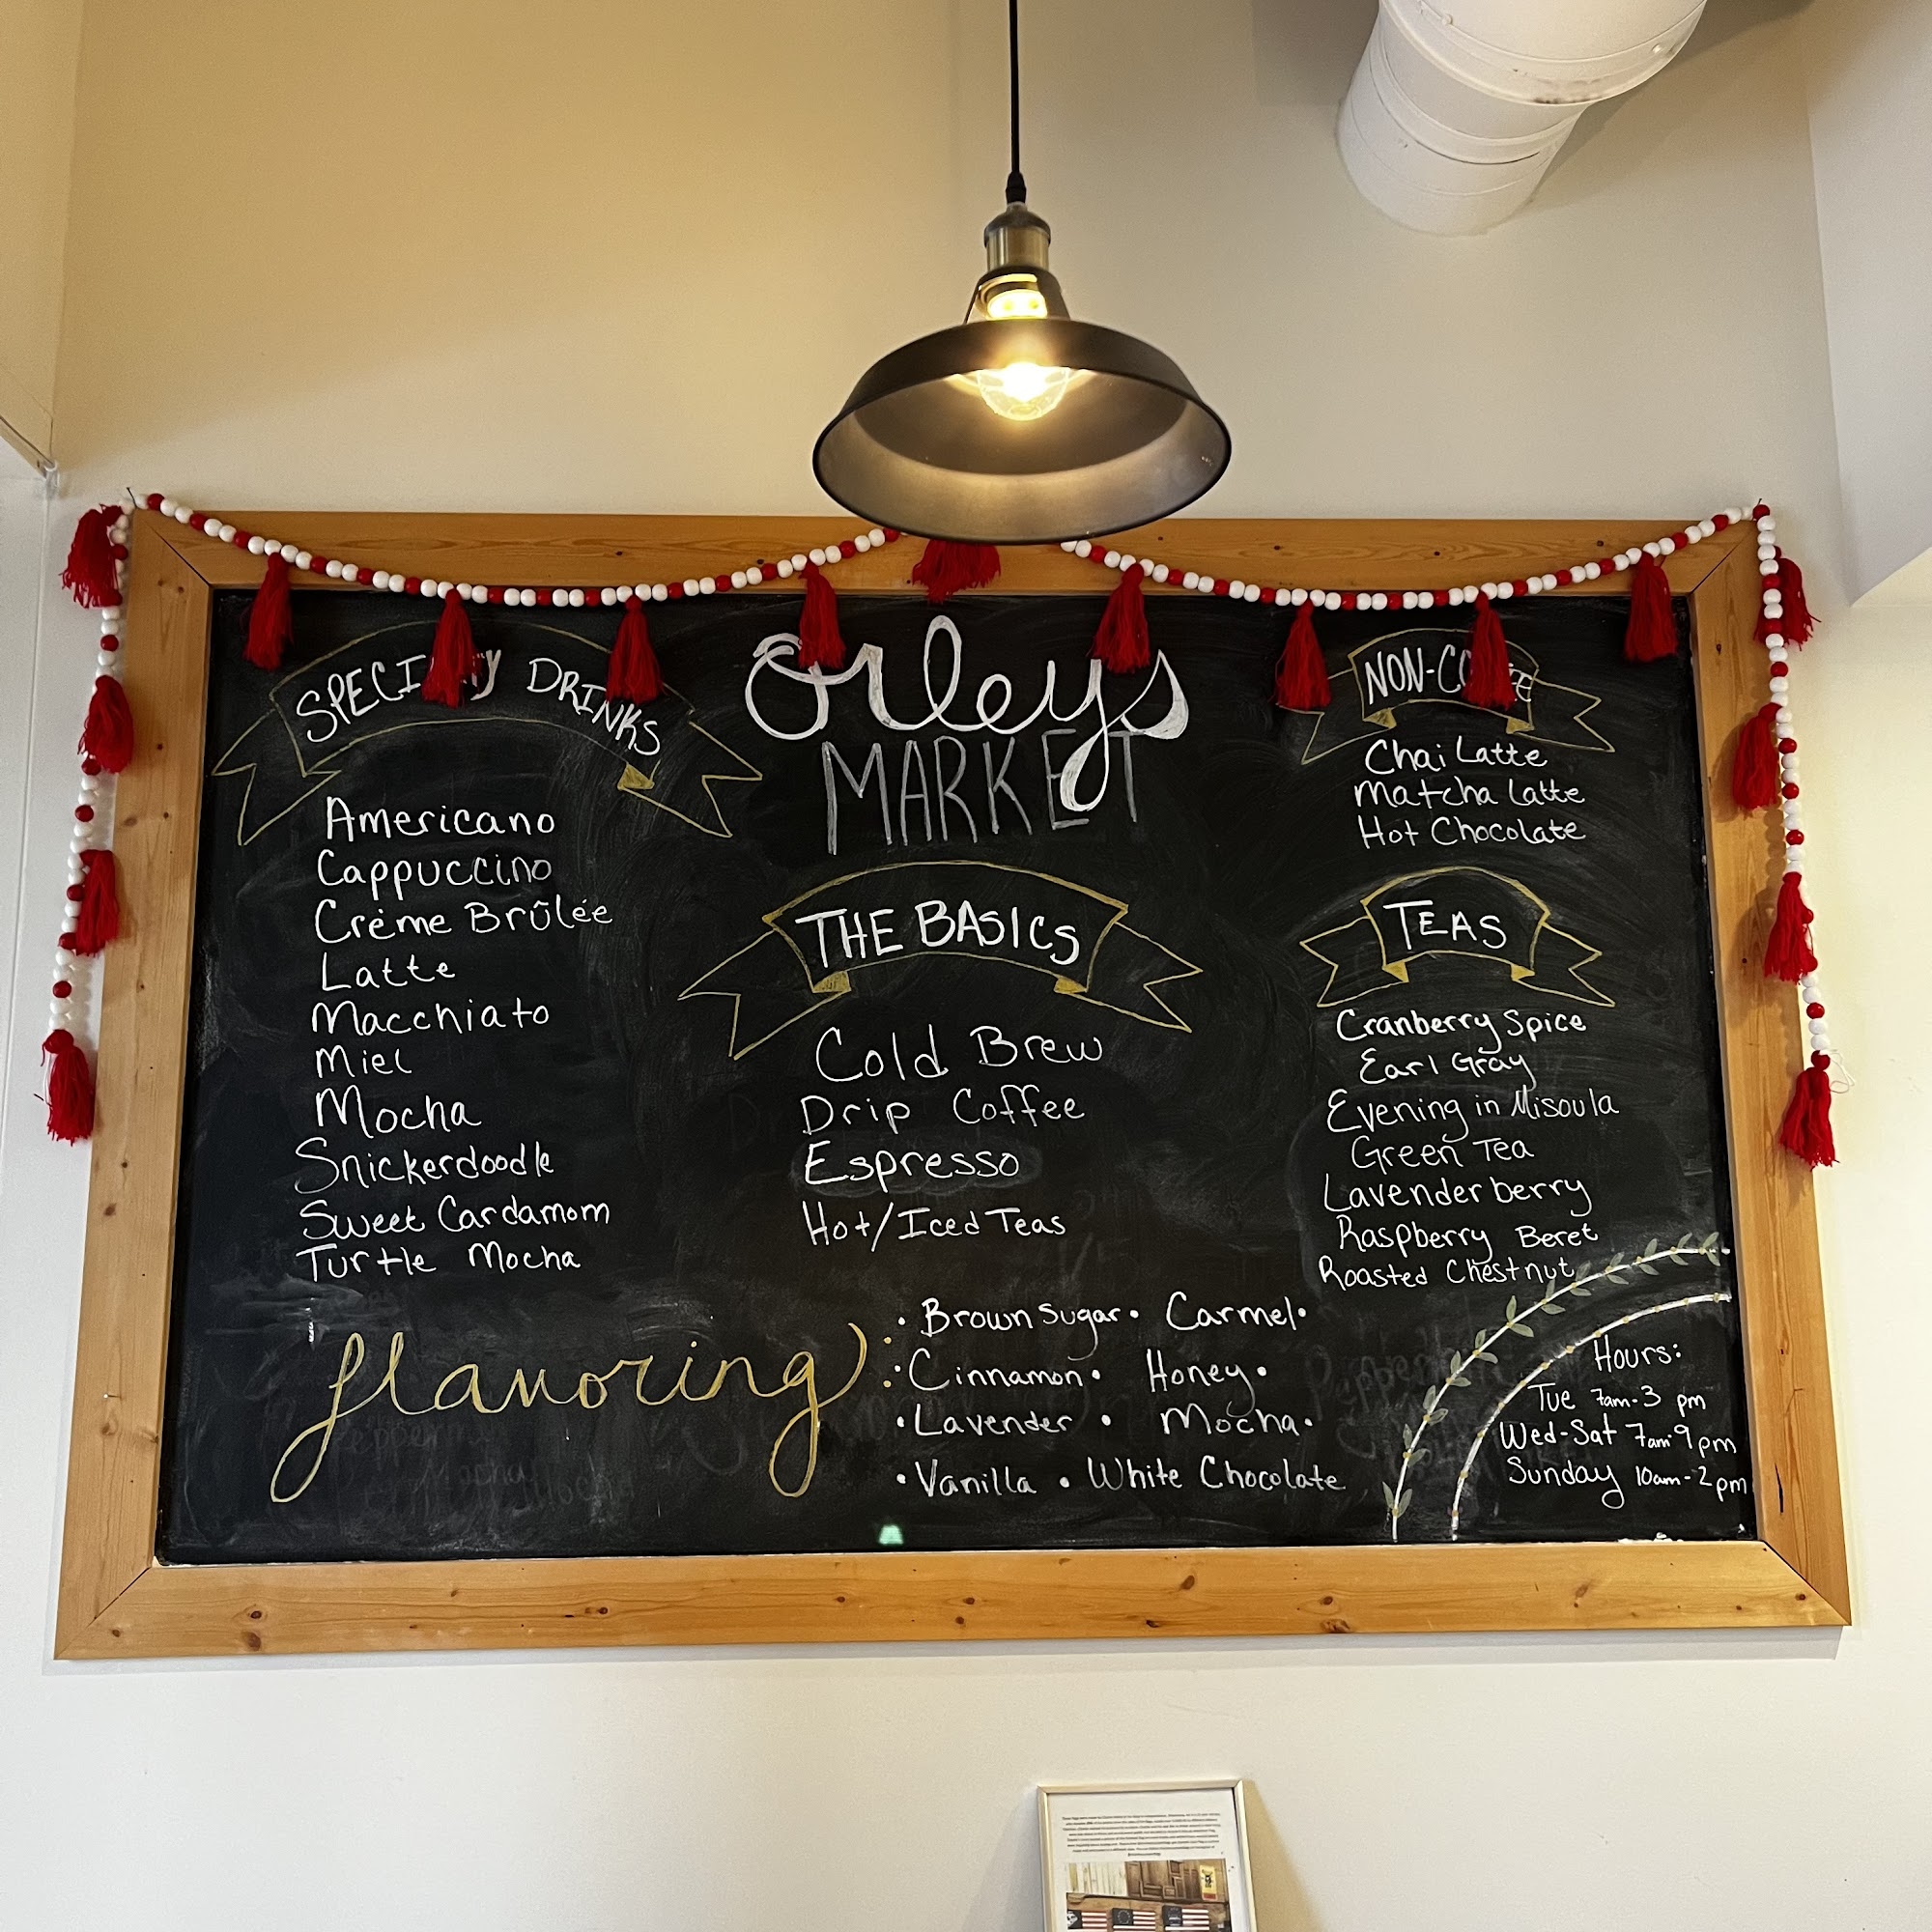 Orleys
MARKET
SPECIALTY DRINKS
Americano
Cappuccino
Crème Brûlée
Latte
Macchiato
Miel
Mocha
Snickerdoodle
Sweet Cardamom
Turtle Mocha
THE BASICS
Cold Brew
Drip Coffee
Espresso
Hot/Iced Teas
NON-COFFEE
Chai Latte
Matcha Latte
Hot Chocolate
TEAS
Cranberry Spice
Earl Gray
Evening in Misoula
Green Tea
Lavender berry
Raspberry Beret
Roasted Chestnut
flavoring:
• Brown Sugar • Carmel •
• Cinnamon • Honey •
• Lavender • Mocha •
• Vanilla • White Chocolate
Hours:
Tue 7am-3 pm
Wed-Sat 7am-9pm
Sunday 10am-2pm